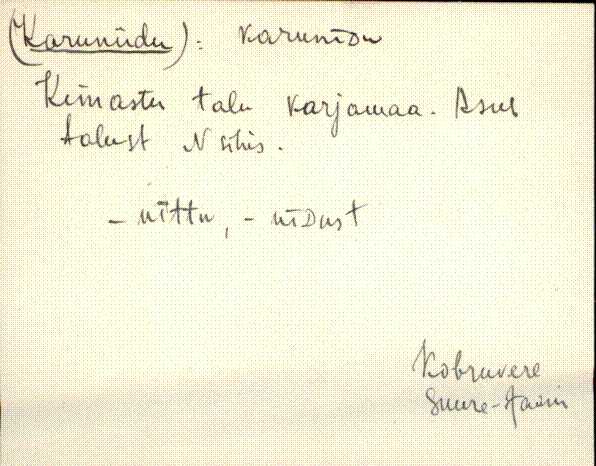 (Karuniidu): karunīDu
Kiinastu talu karjamaa. Asub
talust N sihis.
- nīttu, - nīDust
Kobruvere
Suure-Jaani